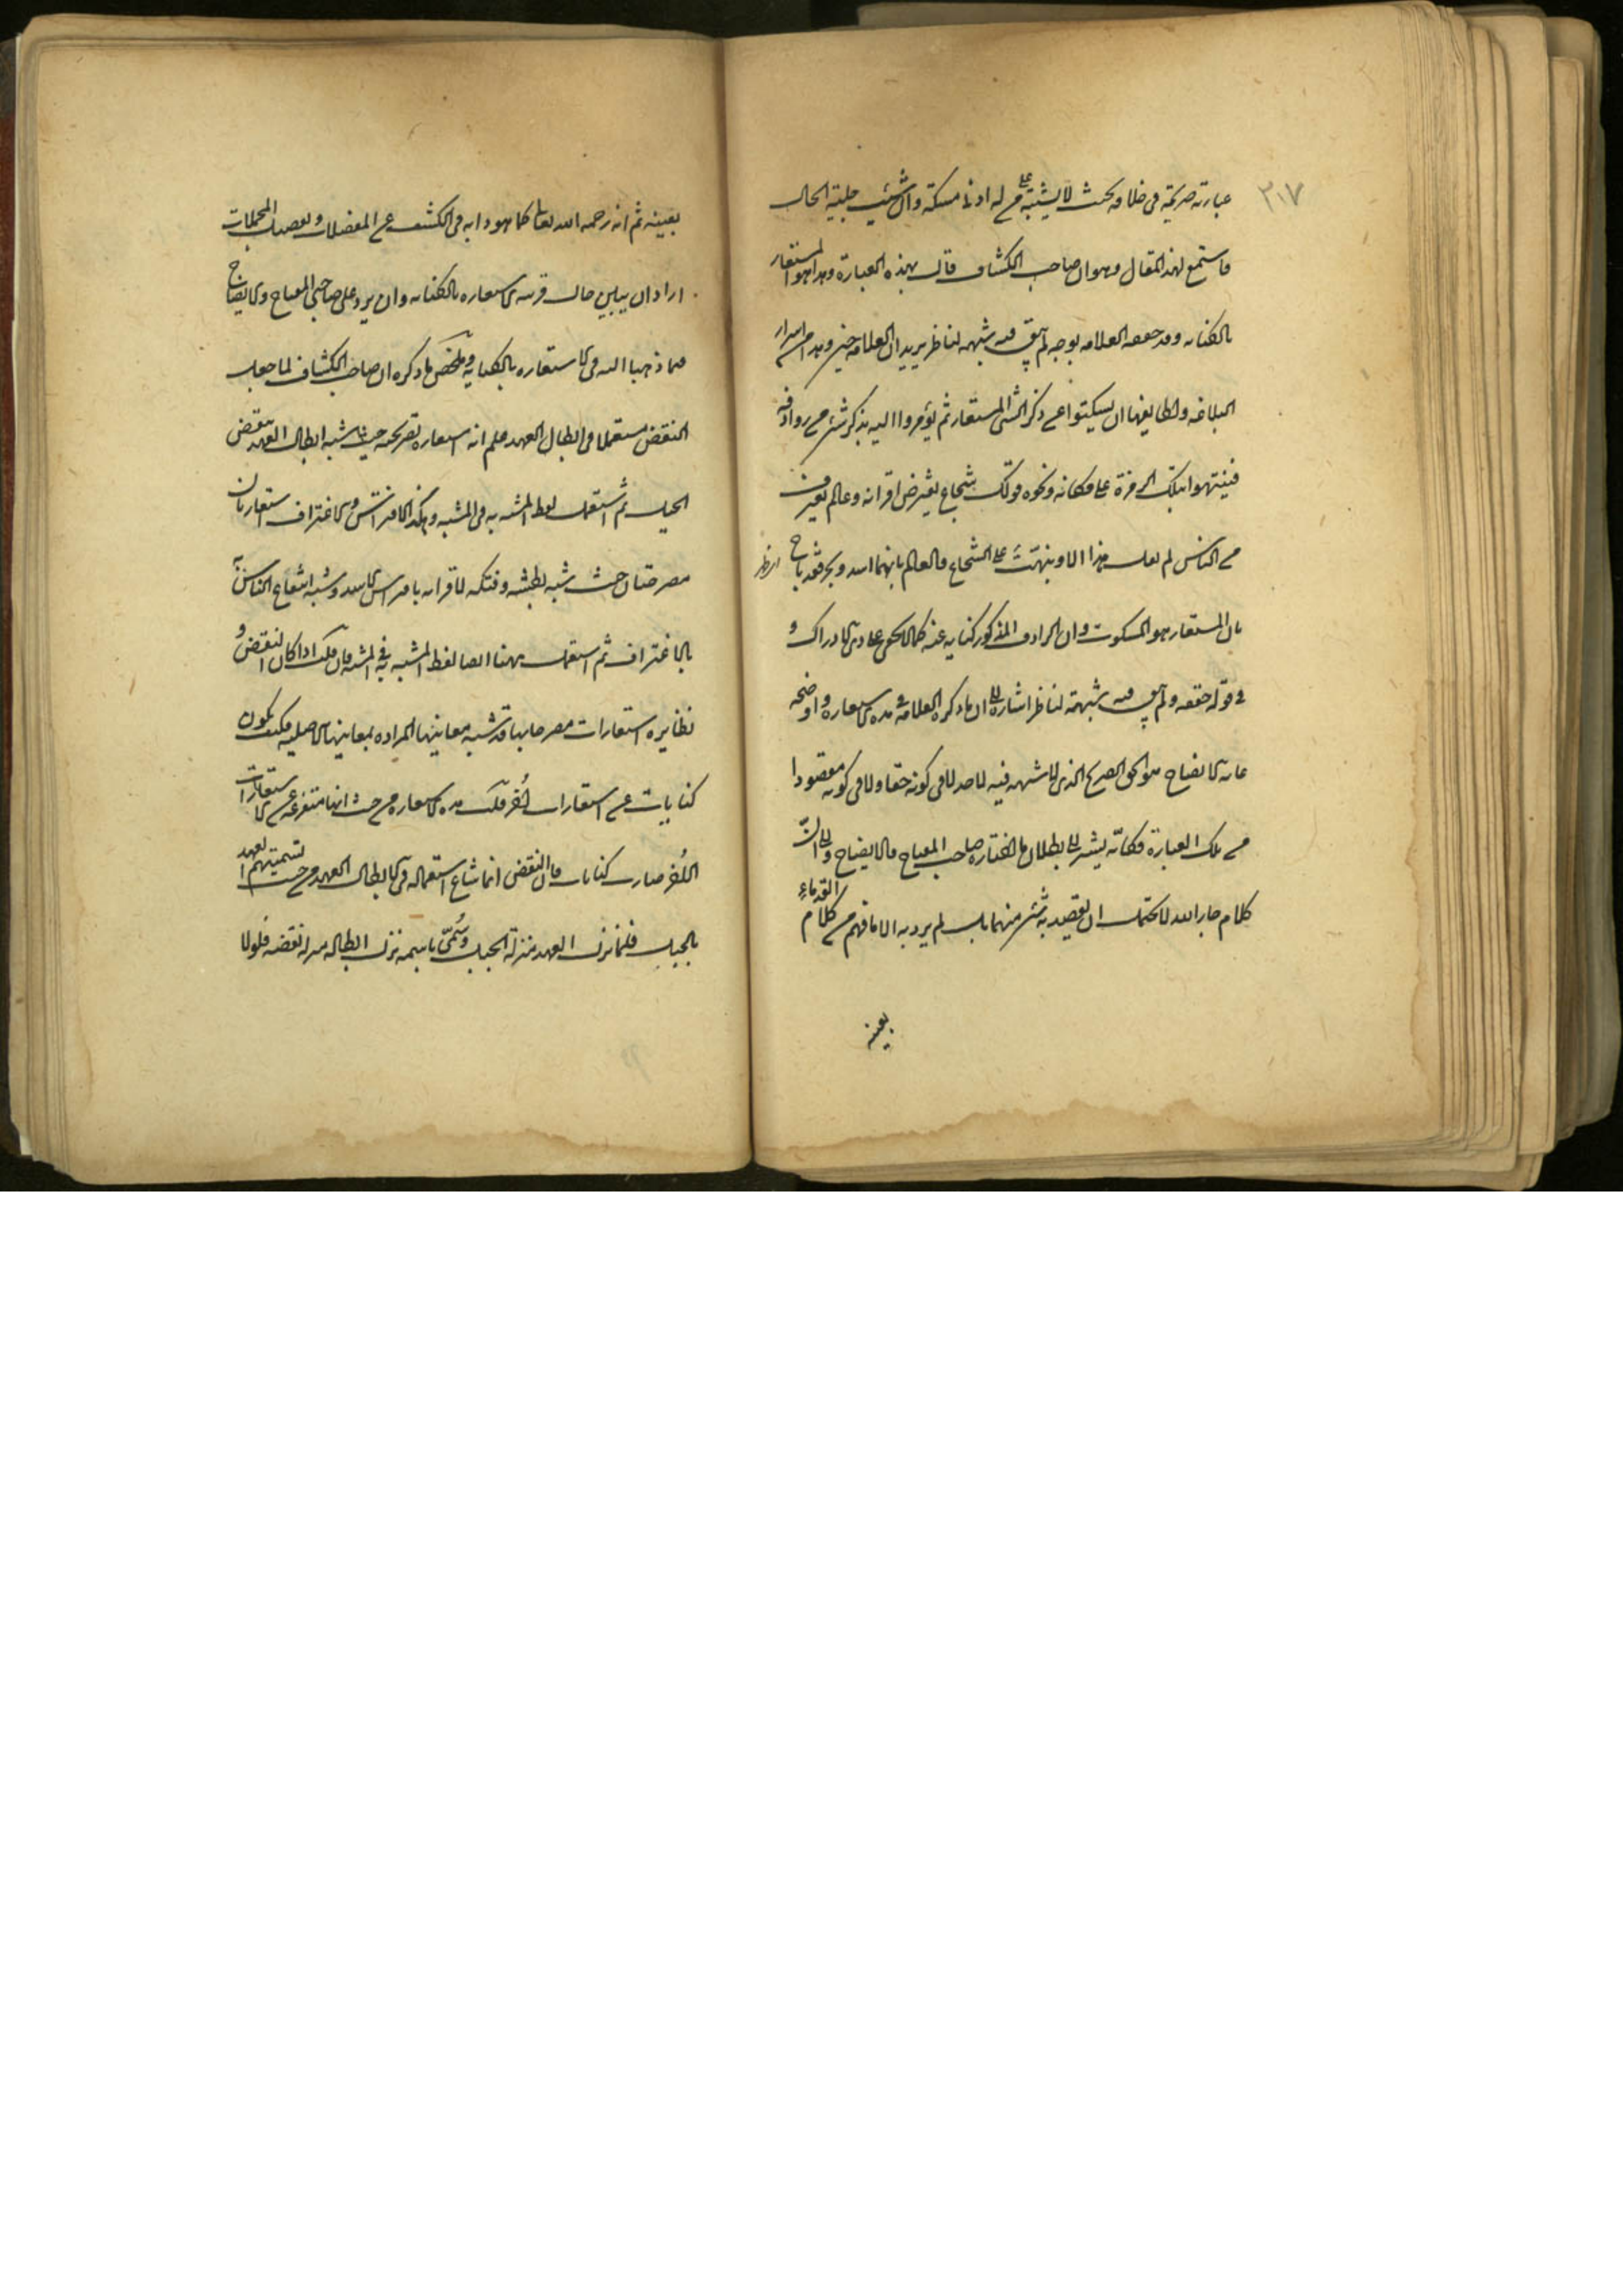 ٣١٧
عبارته صريحة في خلافه بحيث لا يشتبه على من له ادنى مسكة وان شئت جلية الحال
فاستمع لهذا المقال وهو ان صاحب الكشاف قال بهذه العبارة وهذا هو المستعار
بالكنايه وقد حققه العلامه بوجه لم يبق فيه شبهه لناظر يريد ان العلامه حين وهذا من اسرار
البلاغه ولطايفها ان يسكتوا عن ذكر الشئ المستعار ثم يومروا اليه بذكر شئ من روادفه
فينبهوا بتلك الرمزة على مكانه ونحوه قولك شجاع يفترس اقرانه وعالم يغترف
من الناس لم تقل هذا الا وقد نبهت على الشجاع والعالم بانهما اسد وبحر فقد باح
بان المستعار هو المسكوت وان الرادف المذكور كنايه عنه كما لا يخفى على ذي الادراك و
في قوله حققه ولم يبق فيه شبهة لناظر اشارة الى ان ما ذكره العلامه في هذه الاستعاره واوضحه
غايه الايضاح هو الحق الصريح الذي لا شبهه فيه لاحد لا في كونه حقا ولا في كونه مقصودا
من تلك العبارة فكانّه يشير الى بطلان ما اختاره صاحب المفتاح والايضاح والى انّ
كلام جار الله لا يحتمل ان يقصد به شئ منهما بل لم يرد به الا ما فهم من كلام القدماء
بعينه
بعينه ثم انه رحمه الله تعالى كما هو دابه في الكشف عن المعضلات وتفصيل المجملات
اراد ان يبين حال قرينة الاستعاره بالكنايه وان يرد على صاحبي المفتاح والايضاح
فيما ذهبا اليه في الاستعاره بالكنايه وملخص ما ذكره ان صاحب الكشاف لما جعل
النقض مستعملا في ابطال العهد علم انه استعاره تصريحيه حيث شبه ابطال العهد بنقض
الحبل ثم استعمل لفظ المشبه به في المشبه وهكذا الافتراس والاغتراف استعارتان
مصرحتان حيث شبه بطشه وفتكه لاقرانه بافتراس الاسد وشبه انتفاع الناس به
بالاغتراف ثم استعمل ههنا ايضا لفظ المشبه به في المشبه فان قلت اذا كان النقض و
نظايره استعارات مصرحا بها قد شبه معانيها المراده بمعانيها الاصليه فكيف يكون
كنايات عن استعارات اُخر قلت هذه الاستعاره من حيث انها متفرعه عن الاستعارات
الاُخر صارت كنايات فان النقض انما شاع استعماله في ابطال العهد من حيث تسميتهم العهد
بالحبل فلما نزل العهد منزلة الحبل وسُمّى باسمه نزل ابطاله منزلة نقضه فلولا